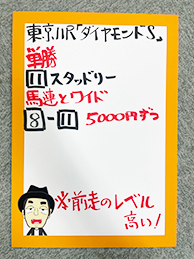 東京11R「ダイヤモンドS」
単勝
11 スタッドリー
馬連とワイド
8-11 5000円ずつ
※前走のレベル
高い!